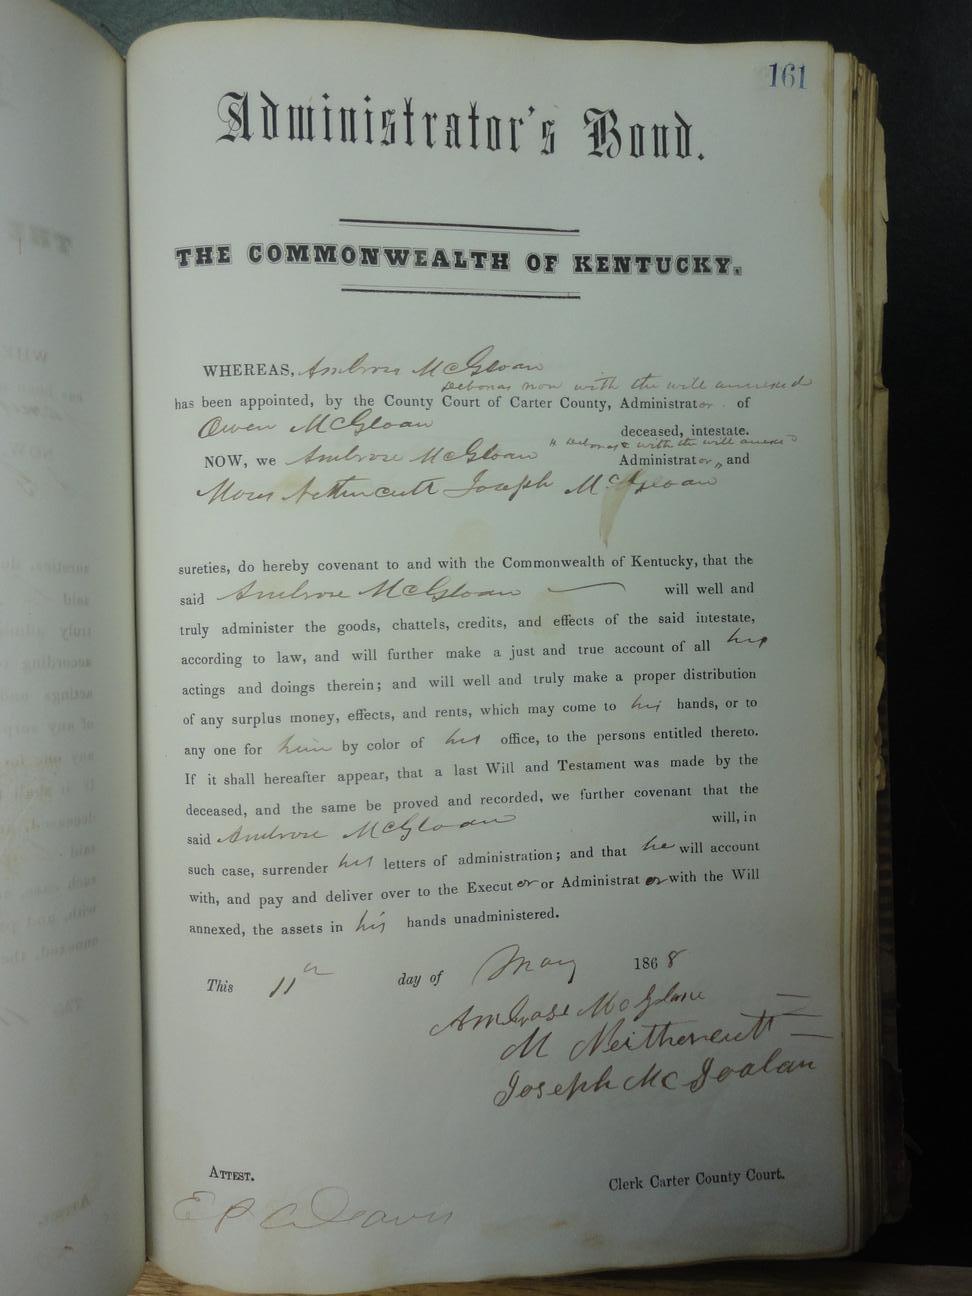 161
Administrator's Bond.
THE COMMONWEALTH OF KENTUCKY.
WHEREAS, Ambrose McGloan
debonas non with the will annexed
has been appointed, by the County Court of Carter County, Administrator of
Owen McGloan deceased, intestate.
" debonas & with the will annex
NOW, we Ambrose McGloan Administrator, and
Moses Nethercutt Joseph McGloan
sureties, do hereby covenant to and with the Commonwealth of Kentucky, that the
said Ambrose McGloan will well and
truly administer the goods, chattels, credits, and effects of the said intestate,
according to law, and will further make a just and true account of all his
actings and doings therein; and will well and truly make a proper distribution
of any surplus money, effects, and rents, which may come to his hands, or to
any one for him by color of his office, to the persons entitled thereto.
If it shall hereafter appear, that a last Will and Testament was made by the
deceased, and the same be proved and recorded, we further covenant that the
said Ambrose McGloan will, in
such case, surrender his letters of administration; and that he will account
with, and pay and deliver over to the Executor or Administrator with the Will
annexed, the assets in his hands unadministered.
This 11th day of May 1868
Ambrose McGlone
M Neithercutt
Joseph McGoalan
ATTEST.
Clerk Carter County Court.
E P Davis